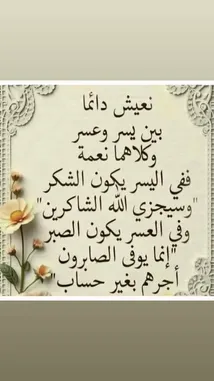 نعيش دائما
بين يسر وعسر
وكلاهما نعمة
ففي اليسر يكون الشكر
"وسيجزي الله الشاكرين"
وفي العسر يكون الصبر
"إنما يوفى الصابرون
أجرهم بغير حساب"